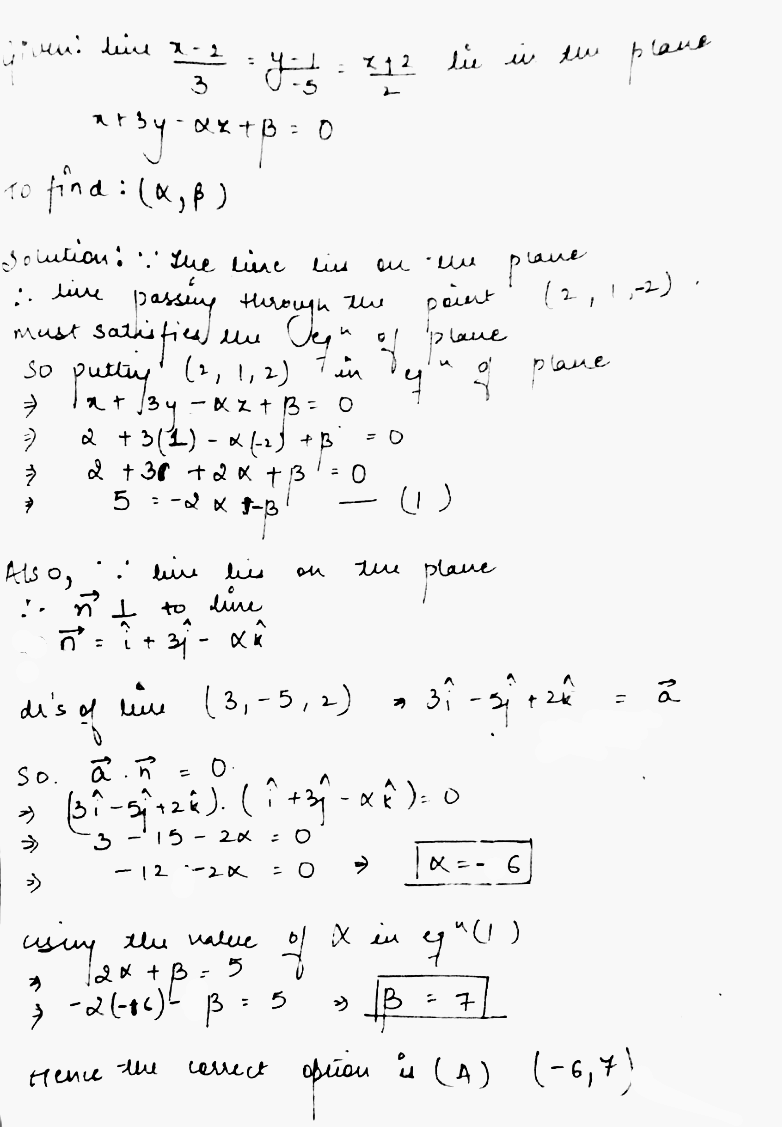 Given: line x-2/3 = y-1/-5 = z+2/2 lie in the plane
x + 3y - αz + β = 0
To find : (α, β)
Solution: ∵ The line lies on the plane
∴ line passing through the point (2, 1, -2).
must satisfies the eqⁿ of plane
So putting (2, 1, 2) in eqⁿ of plane
⇒ x + 3y - αz + β = 0
⇒ 2 + 3(1) - α(-2) + β = 0
⇒ 2 + 3 + 2α + β = 0
⇒ 5 = -2α - β — (1)
Also, ∵ line lies on the plane
∴ n⃗ ⊥ to line
n⃗ = î + 3ĵ - αk̂
dr's of line (3, -5, 2) ⇒ 3î - 5ĵ + 2k̂ = a⃗
So. a⃗ . n⃗ = 0
⇒ (3î - 5ĵ + 2k̂). (î + 3ĵ - αk̂) = 0
⇒ 3 - 15 - 2α = 0
⇒ -12 - 2α = 0 ⇒ α = - 6
using the value of α in eqⁿ (1)
⇒ 2α + β = 5
⇒ -2(-6) - β = 5 ⇒ β = 7
Hence the correct option is (A) (-6, 7)